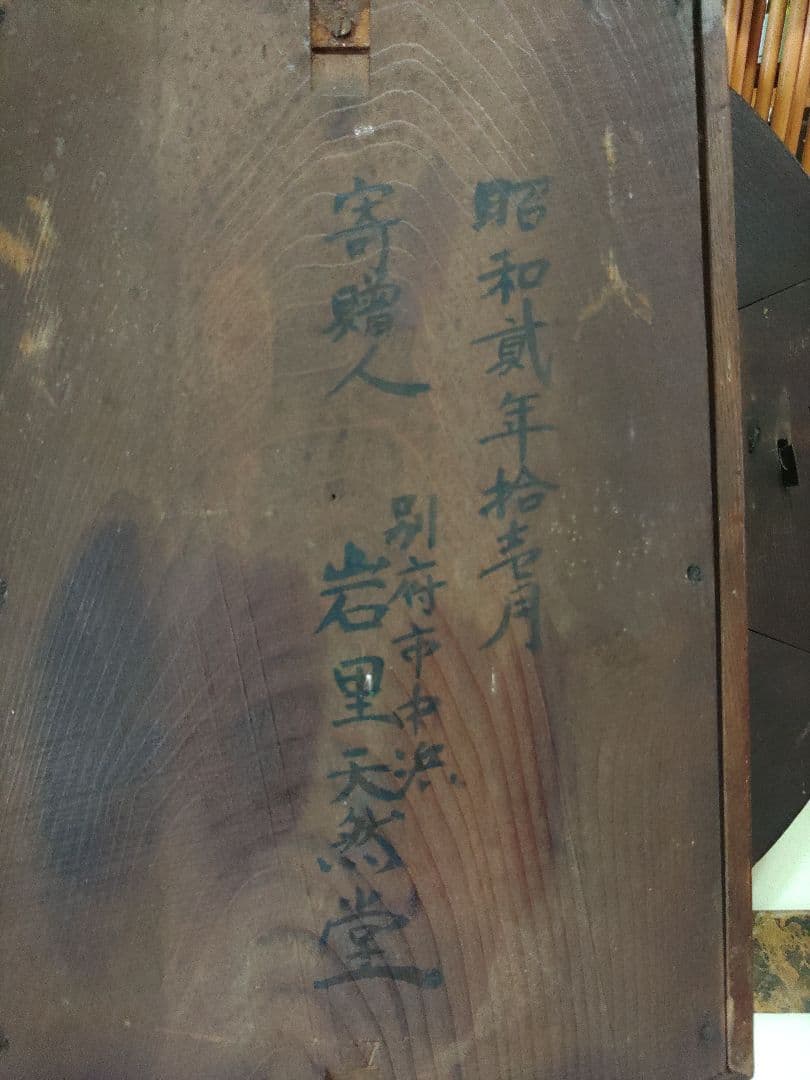 昭和貮年拾壱月
寄贈人
別府市中浜
岩里天然堂